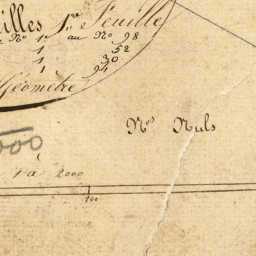 illes 1re Feuille
No 1 au No 98
1 52
1 30
1 94
Géomètre
Nos Nuls
000
1 à 2000